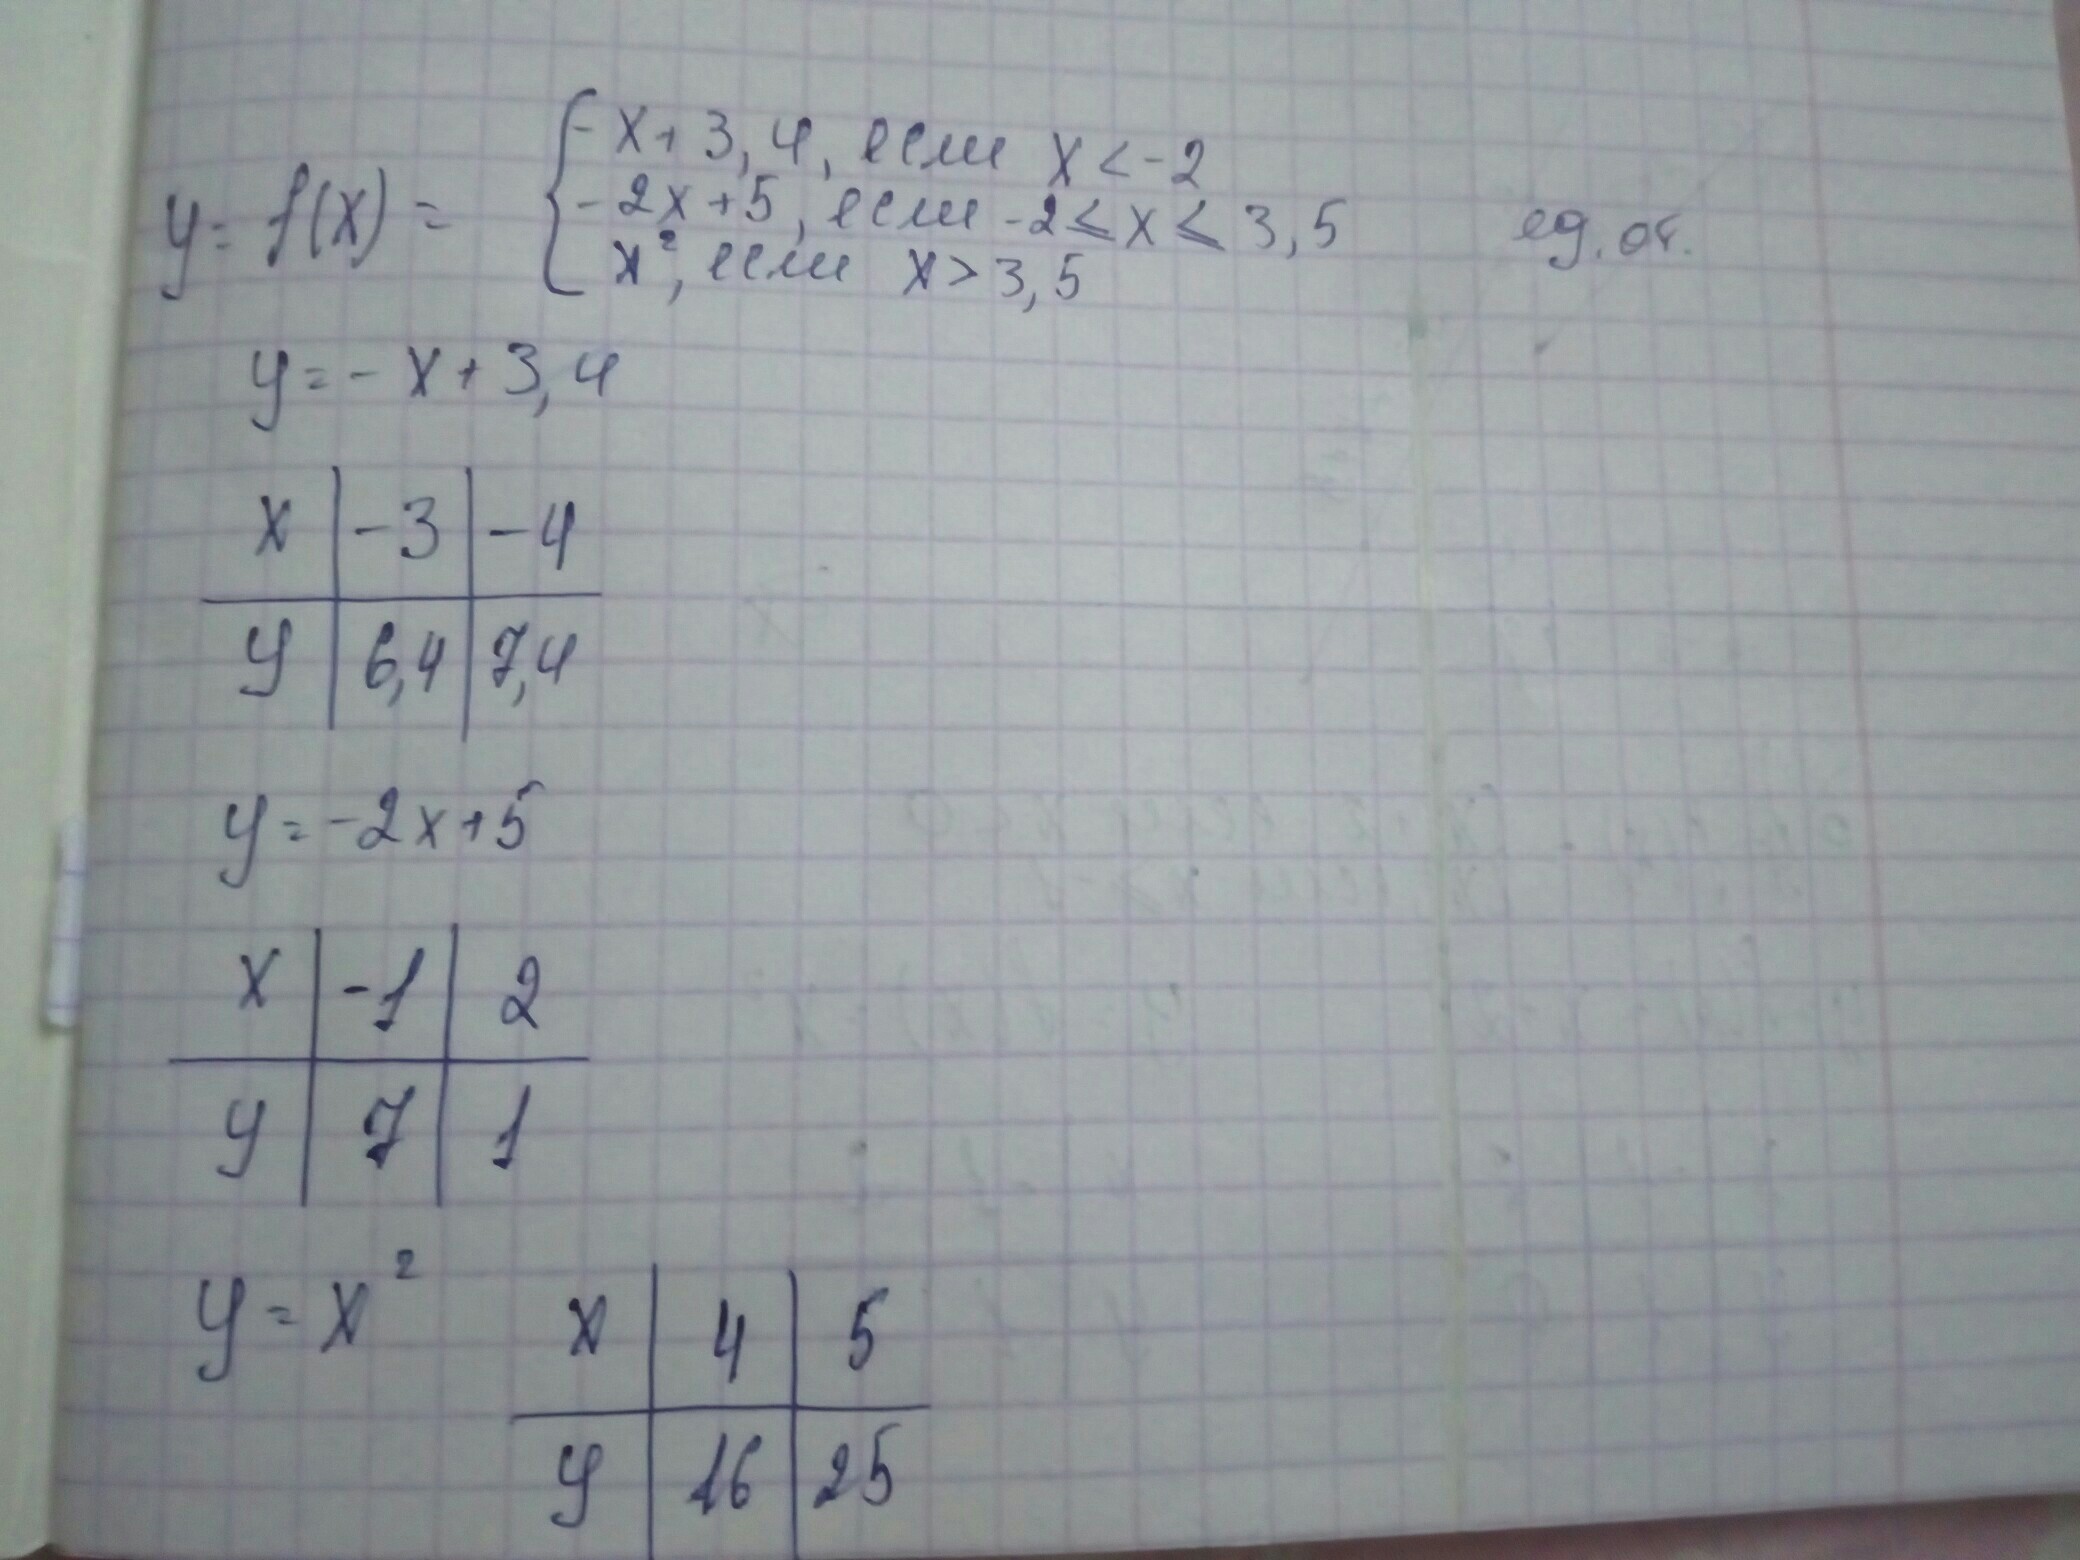 y = f(x) = { -x + 3,4, если x < -2
-2x + 5, если -2 ≤ x ≤ 3,5
x², если x > 3,5
ед. от.
y = -x + 3,4
x | -3 | -4
y | 6,4 | 7,4
y = -2x + 5
x | -1 | 2
y | 7 | 1
y = x²
x | 4 | 5
y | 16 | 25